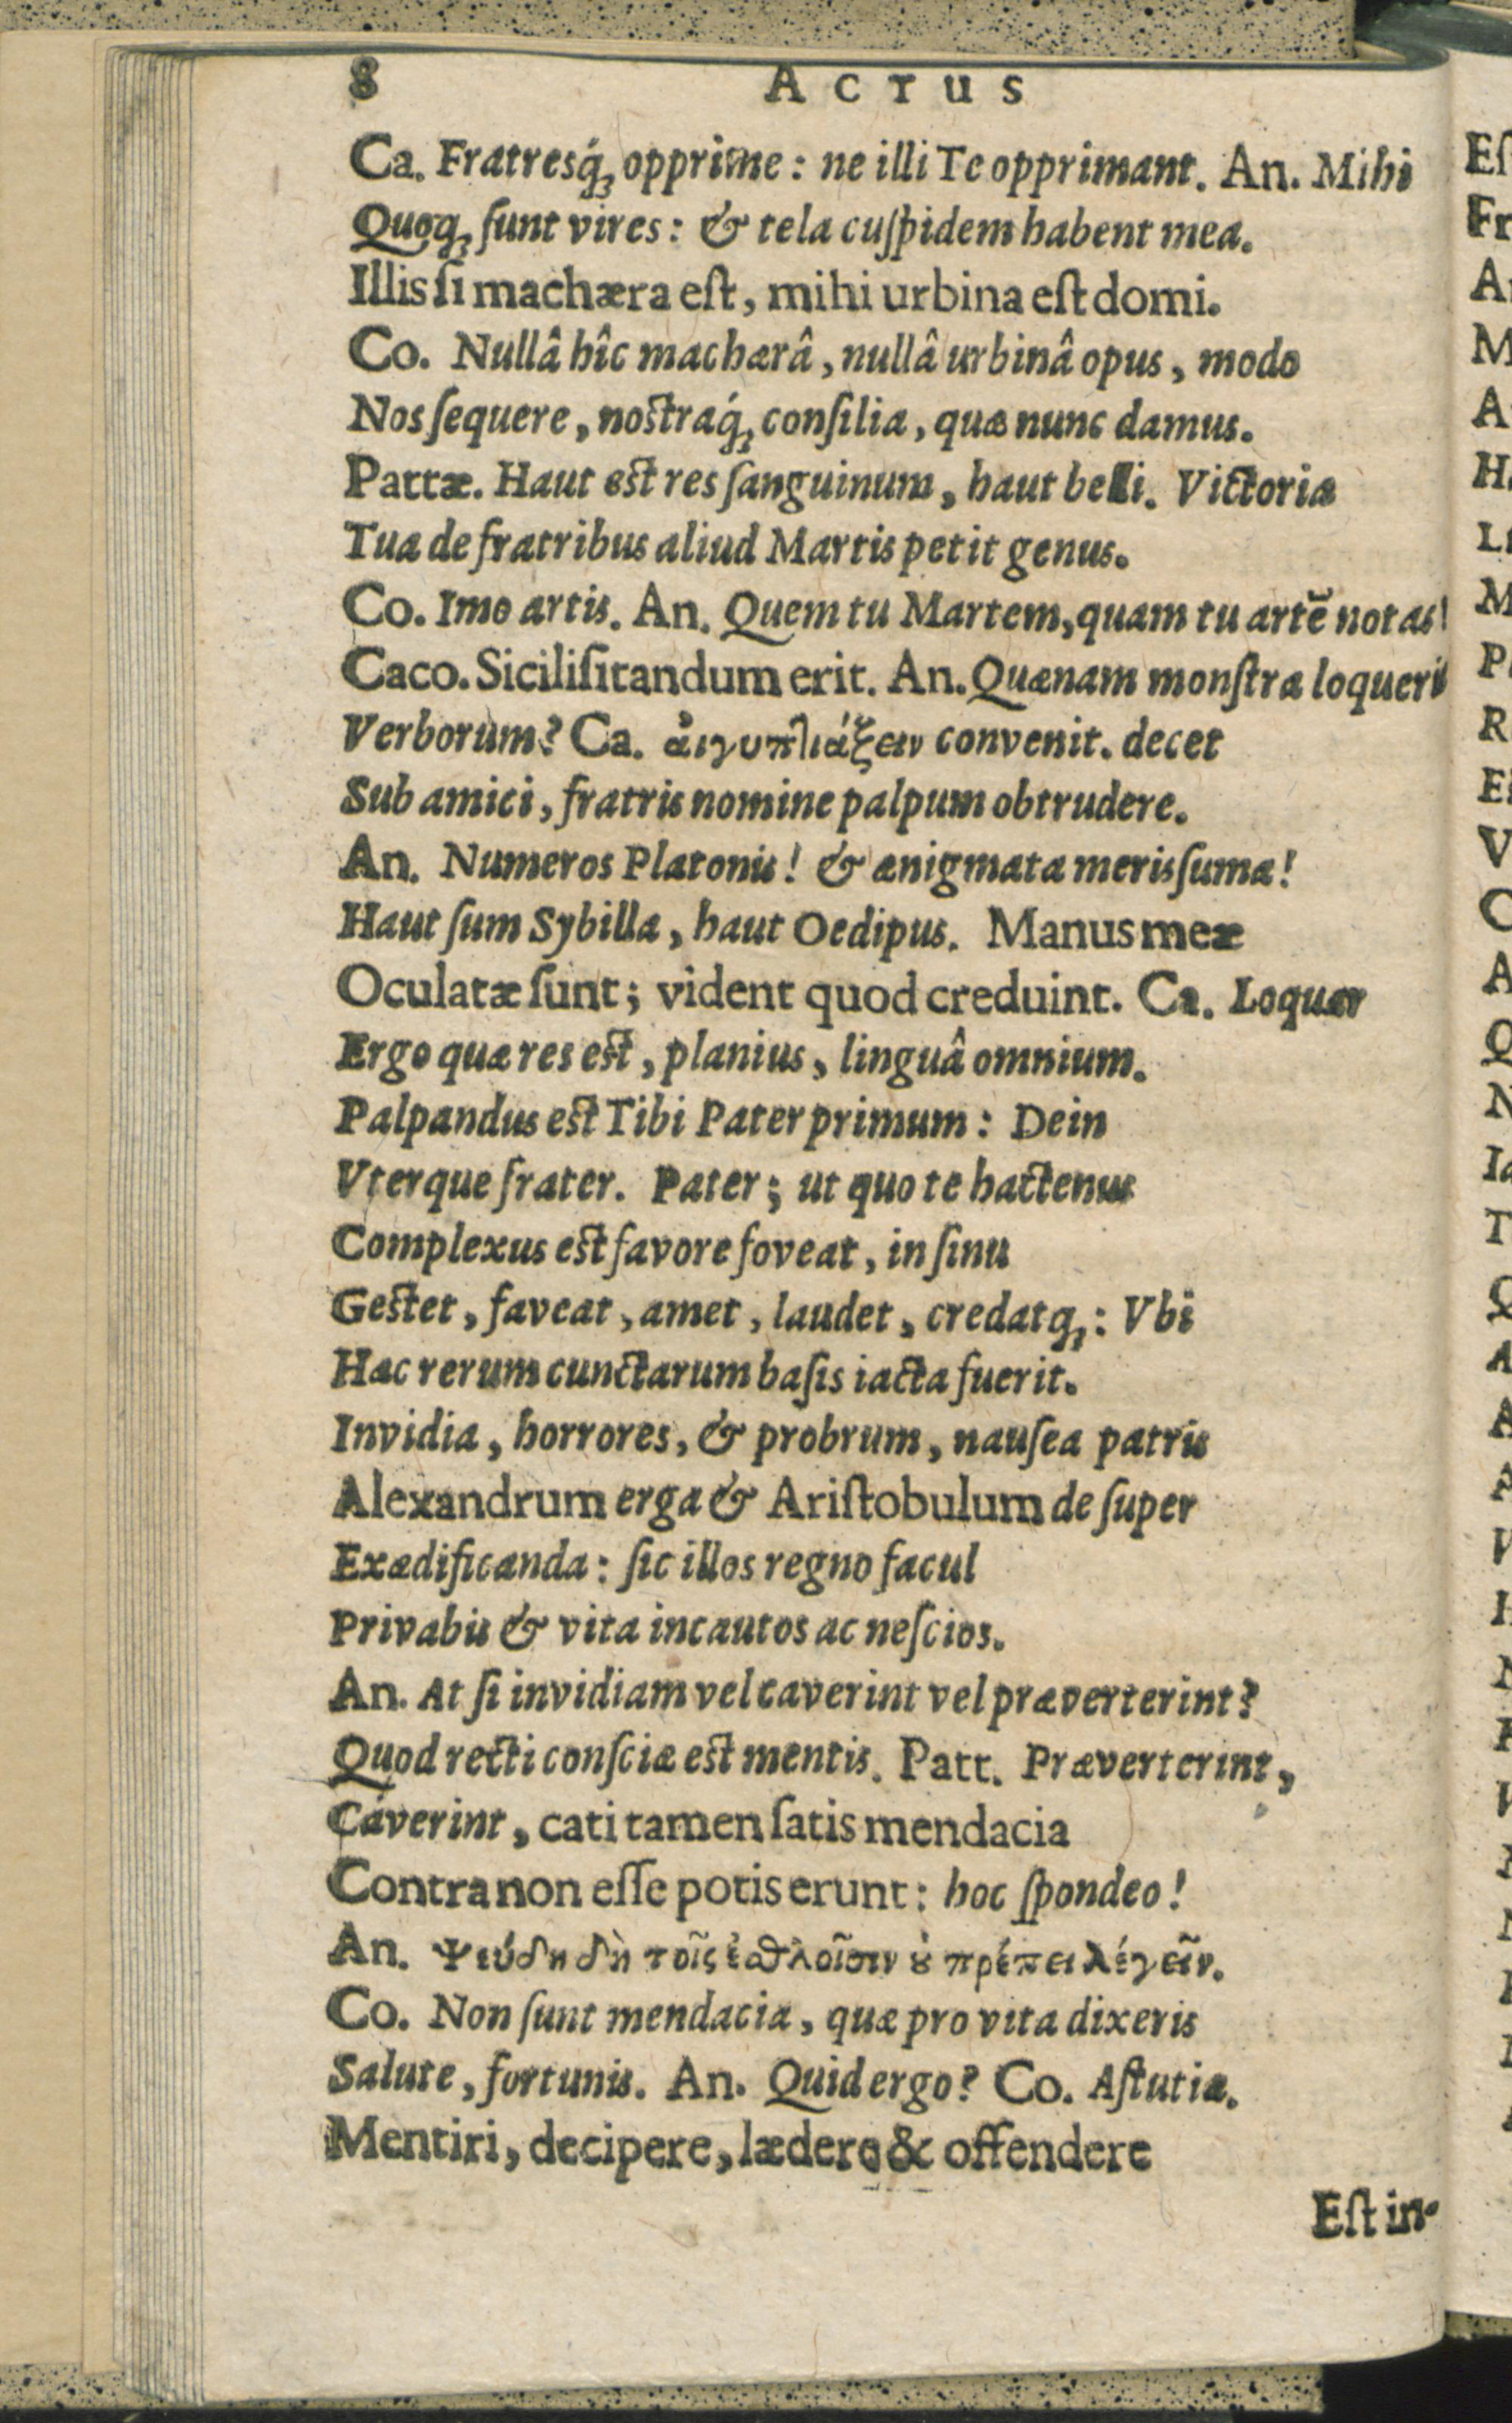 8 ACTUS
Ca. Fratresq́; opprime: ne illi Te opprimant. An. Mihi
Quoq; ſunt vires: & tela cuſpidem habent mea.
Illis ſi machæra eſt, mihi urbina eſt domi.
Co. Nullâ hîc machærâ, nullâ urbinâ opus, modo
Nos ſequere, noſtraq́; conſilia, quæ nunc damus.
Pattæ. Haut eſt res ſanguinum, haut belli. Victoria
Tua de fratribus aliud Martis petit genus.
Co. Imo artis. An. Quem tu Martem, quam tu artē notas!
Caco. Siciliſitandum erit. An. Quænam monſtra loqueris
Verborum? Ca. ἀιγυπλιάξειν convenit. decet
Sub amici, fratris nomine palpum obtrudere.
An. Numeros Platonis! & ænigmata merisſuma!
Haut ſum Sybilla, haut Oedipus. Manus meæ
Oculatæ ſunt; vident quod creduint. Ca. Loquar
Ergo quæ res eſt, planius, linguâ omnium.
Palpandus eſt Tibi Pater primum: Dein
Vterque frater. Pater; ut quo te hactenus
Complexus eſt favore foveat, in ſinu
Geſtet, faveat, amet, laudet, credatq;: Vbi
Hæc rerum cunctarum baſis iacta fuerit.
Invidia, horrores, & probrum, nauſea patris
Alexandrum erga & Ariſtobulum de ſuper
Exædificanda: ſic illos regno facul
Privabis & vita incautos ac neſcios.
An. At ſi invidiam vel caverint vel præverterint?
Quod recti conſciæ eſt mentis. Patt. Præverterint,
Caverint, cati tamen ſatis mendacia
Contra non eſſe potis erunt: hoc ſpondeo!
An. Ψεύδη δὴ τοῖς ἐσθλοῖσιν ȣ́ πρέπει λέγεῖν.
Co. Non ſunt mendacia, quæ pro vita dixeris
Salute, fortunis. An. Quid ergo? Co. Aſtutiæ.
Mentiri, decipere, lædere & offendere
Eſt in-